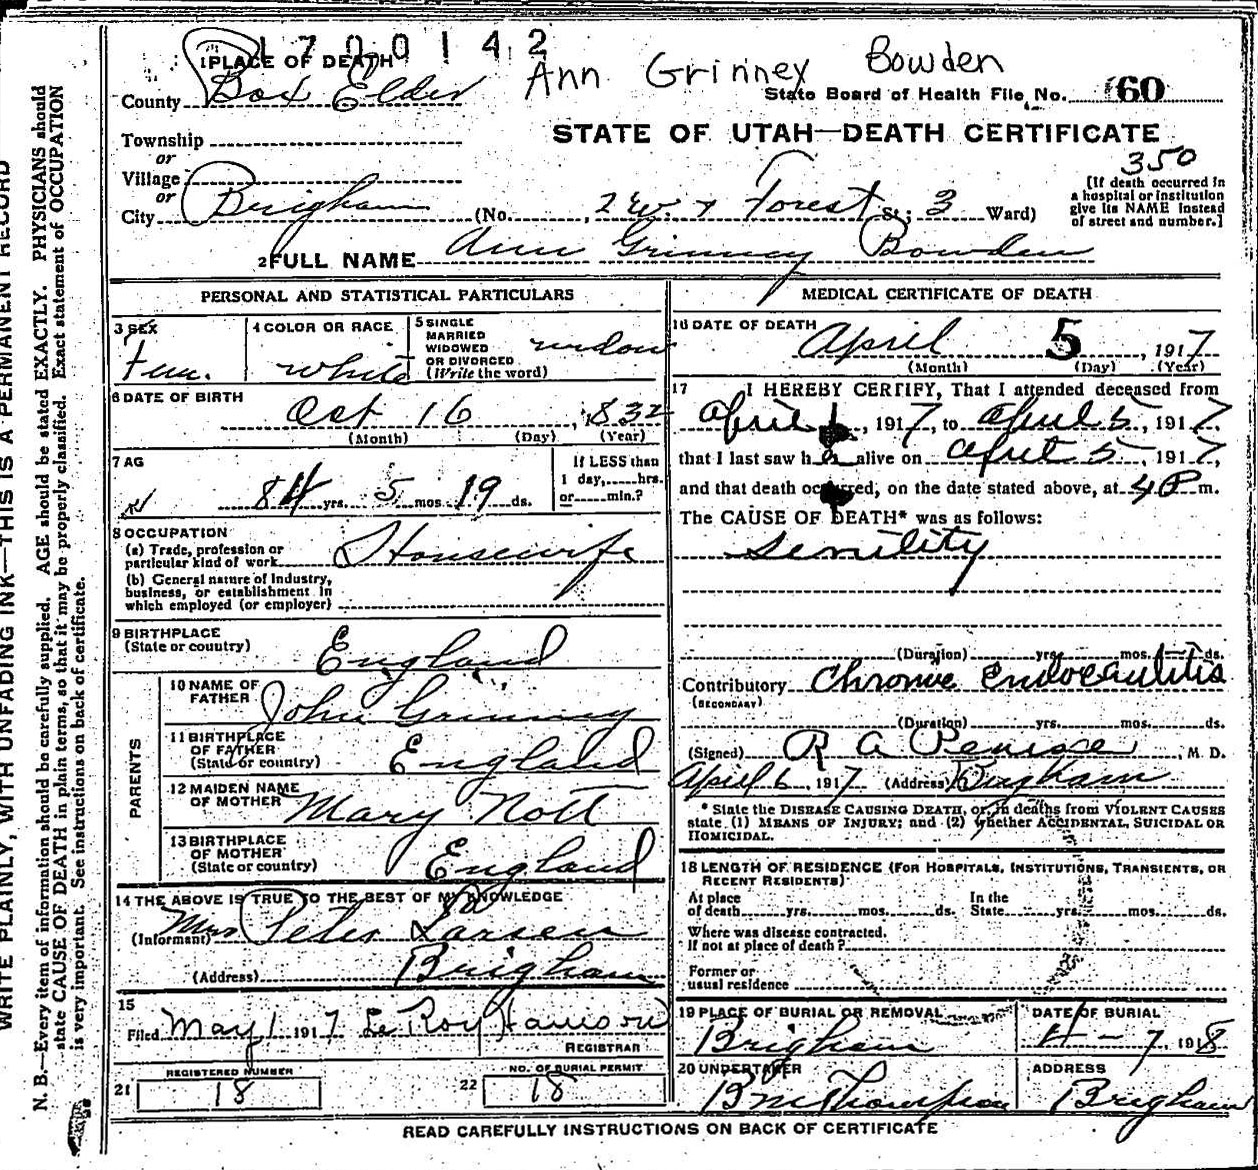 1700142
Ann Grinney Bowden
1 PLACE OF DEATH
County Box Elder
State Board of Health File No. 60
Township
or
Village
or
City Brigham
STATE OF UTAH—DEATH CERTIFICATE
350
[If death occurred in
a hospital or institution
give its NAME instead
of street and number.]
(No. 2 W. & Forest St.; 3 Ward)
2 FULL NAME Ann Grinney Bowden
PERSONAL AND STATISTICAL PARTICULARS
3 SEX
Fem.
4 COLOR OR RACE
white
5 SINGLE
MARRIED
WIDOWED
OR DIVORCED
(Write the word)
widow
6 DATE OF BIRTH
Oct 16, 1832
(Month) (Day) (Year)
7 AG
84 yrs. 5 mos. 19 ds.
If LESS than
1 day,......hrs.
or......min.?
8 OCCUPATION
(a) Trade, profession or
particular kind of work Housewife
(b) General nature of Industry,
business, or establishment in
which employed (or employer)
9 BIRTHPLACE
(State or country)
England
PARENTS
10 NAME OF
FATHER
John Grinney
11 BIRTHPLACE
OF FATHER
(State or country)
England
12 MAIDEN NAME
OF MOTHER
Mary Nott
13 BIRTHPLACE
OF MOTHER
(State or country)
England
14 THE ABOVE IS TRUE TO THE BEST OF MY KNOWLEDGE
(Informant) Mrs Peter Larsen
(Address) Brigham
15
Filed May 1 1917 LeRoy
REGISTRAR
21 REGISTERED NUMBER
18
22 NO. OF BURIAL PERMIT
18
MEDICAL CERTIFICATE OF DEATH
16 DATE OF DEATH
April 5, 1917
(Month) (Day) (Year)
17 I HEREBY CERTIFY, That I attended deceased from
April 1, 1917, to April 5, 1917,
that I last saw her alive on April 5, 1917,
and that death occurred, on the date stated above, at 4 P m.
The CAUSE OF DEATH* was as follows:
Senility
(Duration) yrs. mos. ds.
Contributory Chronic Endocarditis
(SECONDARY)
(Duration) yrs. mos. ds.
(Signed) R A Pearse, M. D.
April 6, 1917 (Address) Brigham
* State the DISEASE CAUSING DEATH, or, in deaths from VIOLENT CAUSES
state (1) MEANS OF INJURY; and (2) whether ACCIDENTAL, SUICIDAL OR
HOMICIDAL.
18 LENGTH OF RESIDENCE (FOR HOSPITALS, INSTITUTIONS, TRANSIENTS, OR
RECENT RESIDENTS)
At place
of death yrs. mos. ds.
In the
State yrs. mos. ds.
Where was disease contracted.
If not at place of death?
Former or
usual residence
19 PLACE OF BURIAL OR REMOVAL
Brigham
DATE OF BURIAL
4-7, 1918
20 UNDERTAKER
Thompson
ADDRESS
Brigham
READ CAREFULLY INSTRUCTIONS ON BACK OF CERTIFICATE
WRITE PLAINLY, WITH UNFADING INK—THIS IS A PERMANENT RECORD
N. B.—Every item of information should be carefully supplied. AGE should be stated EXACTLY. PHYSICIANS should
state CAUSE OF DEATH in plain terms, so that it may be properly classified. Exact statement of OCCUPATION
is very important. See instructions on back of certificate.